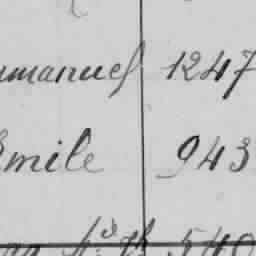 mmanuel 1247
Emile 943
540